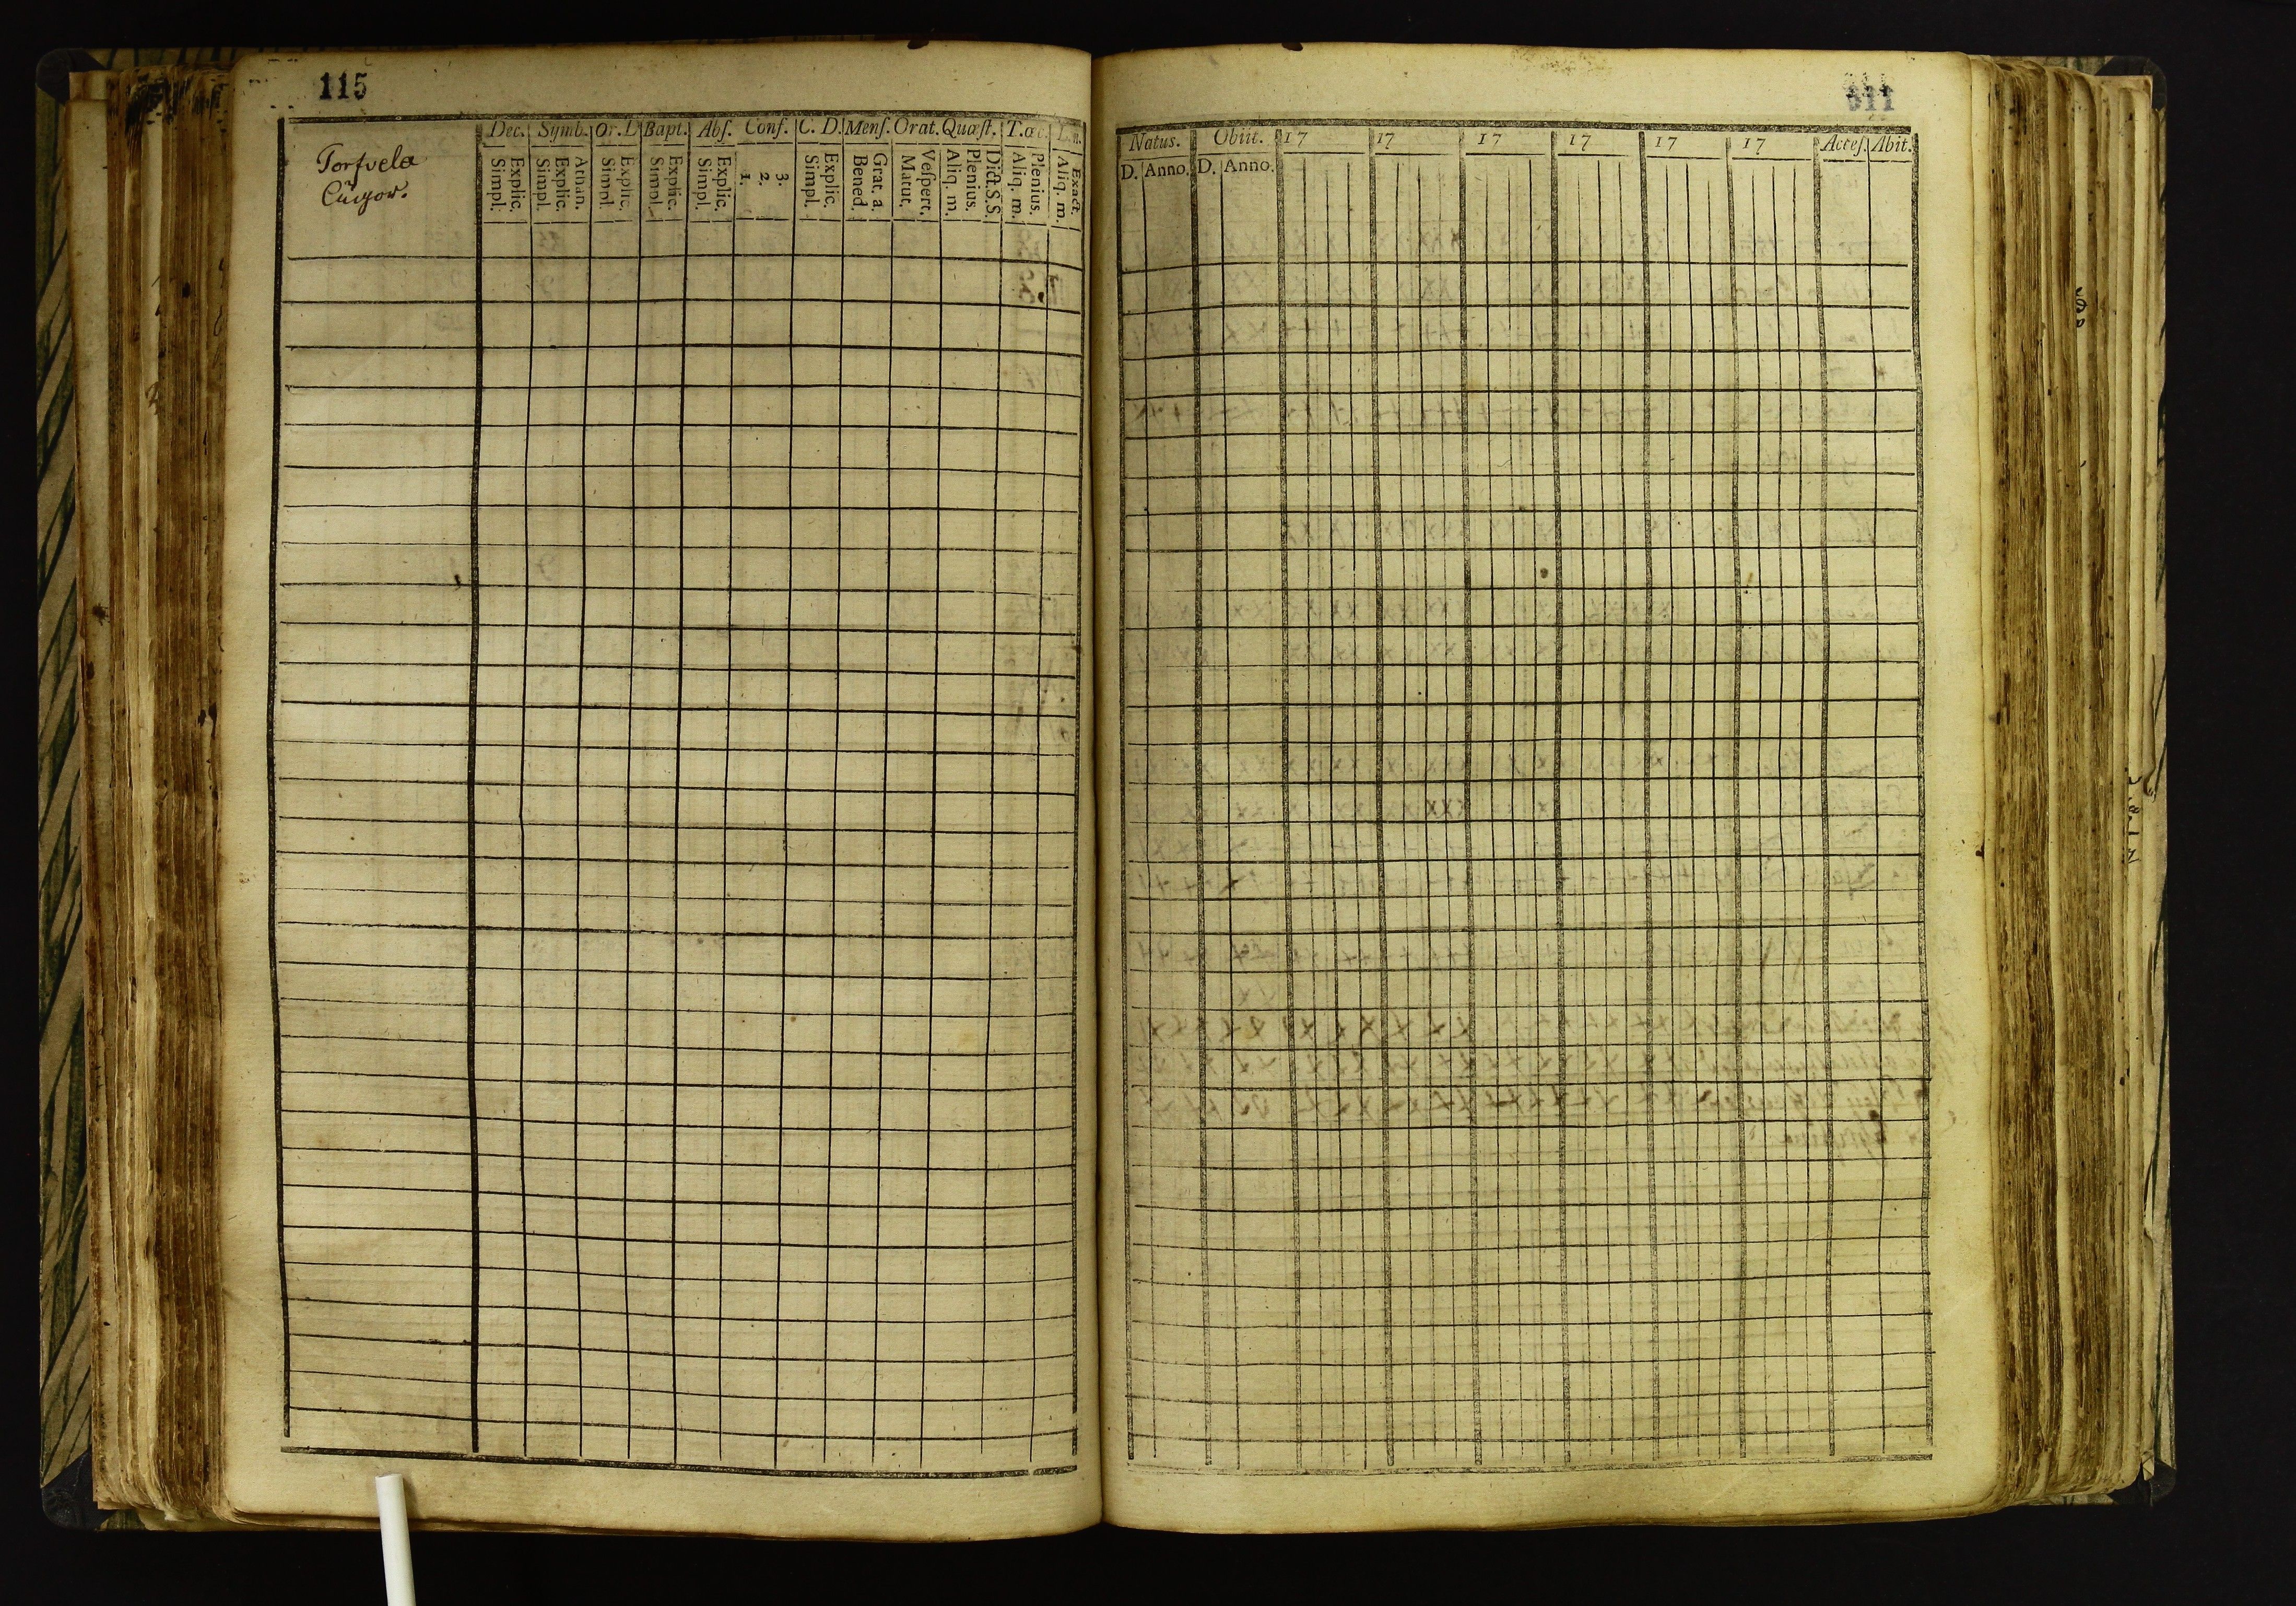 115
Dec. Symb. Or. D Bapt. Abſ. Conf. C. D. Menſ. Orat. Quæſt. T. œc.
Torſvela
Cuigor.
Explic. Simpl.
Athan. Explic. Simpl.
Explic. Simpl.
Explic. Simpl.
Explic. Simpl.
3. 2. 1.
Explic. Simpl.
Grat. a. Bened.
Veſpert. Matut.
Plenius. Aliq. m.
Dict. S. S.
Plenius. Aliq. m.
Exact. Aliq. m.
311
Natus. Obiit. 17 17 17 17 17 17 Acceſ. Abit.
D. Anno. D. Anno.